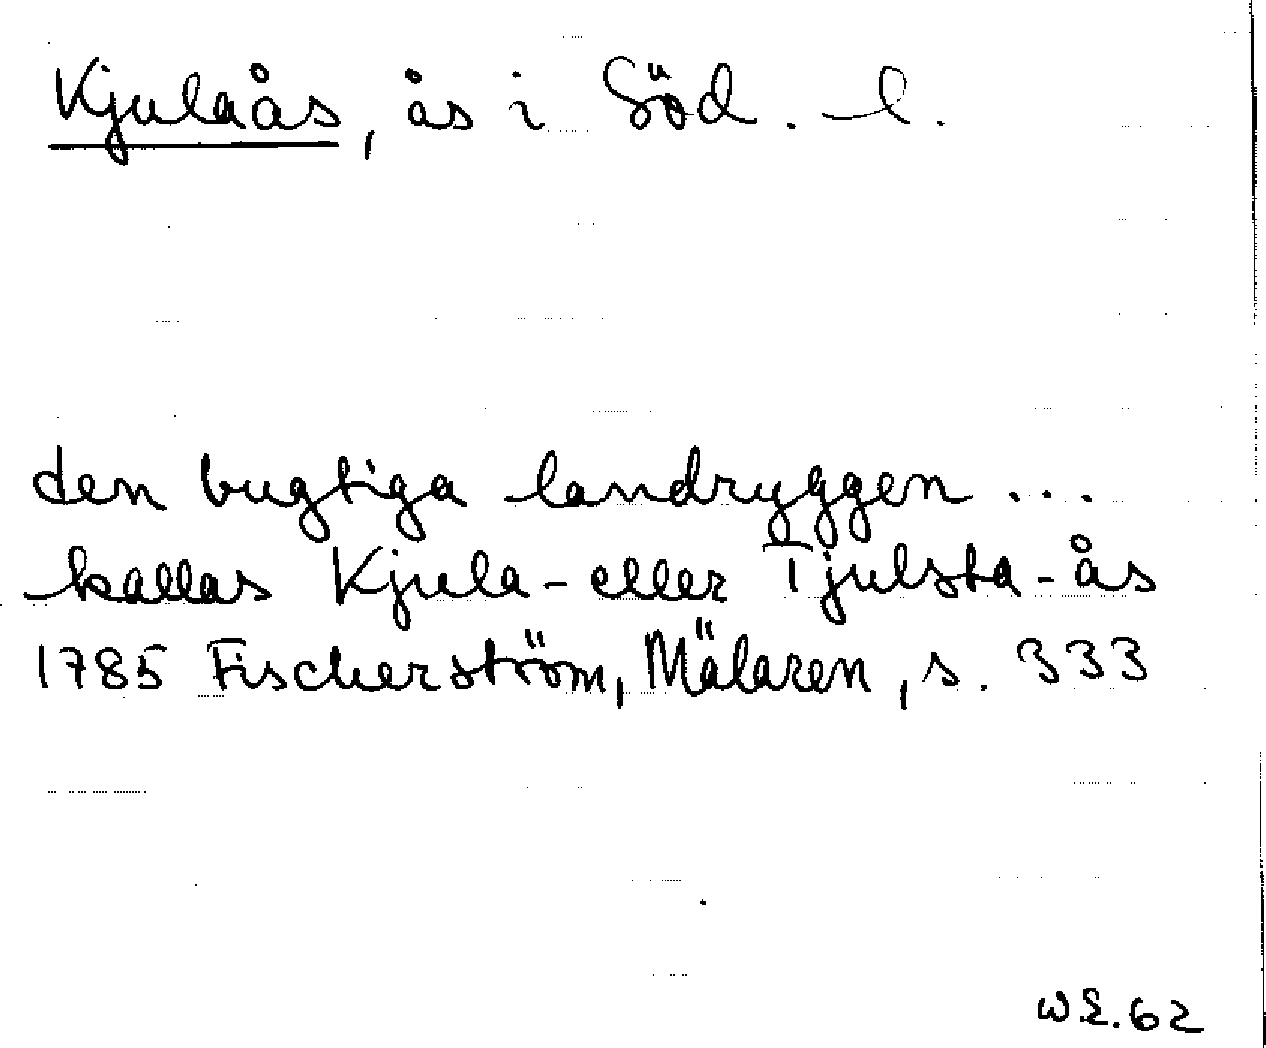 Kjulaås, ås i Söd. l.
den bugtiga landryggen ...
kallas Kjula- eller Tjulsta-ås
1785 Fischerström, Mälaren, s. 333
W.E.62